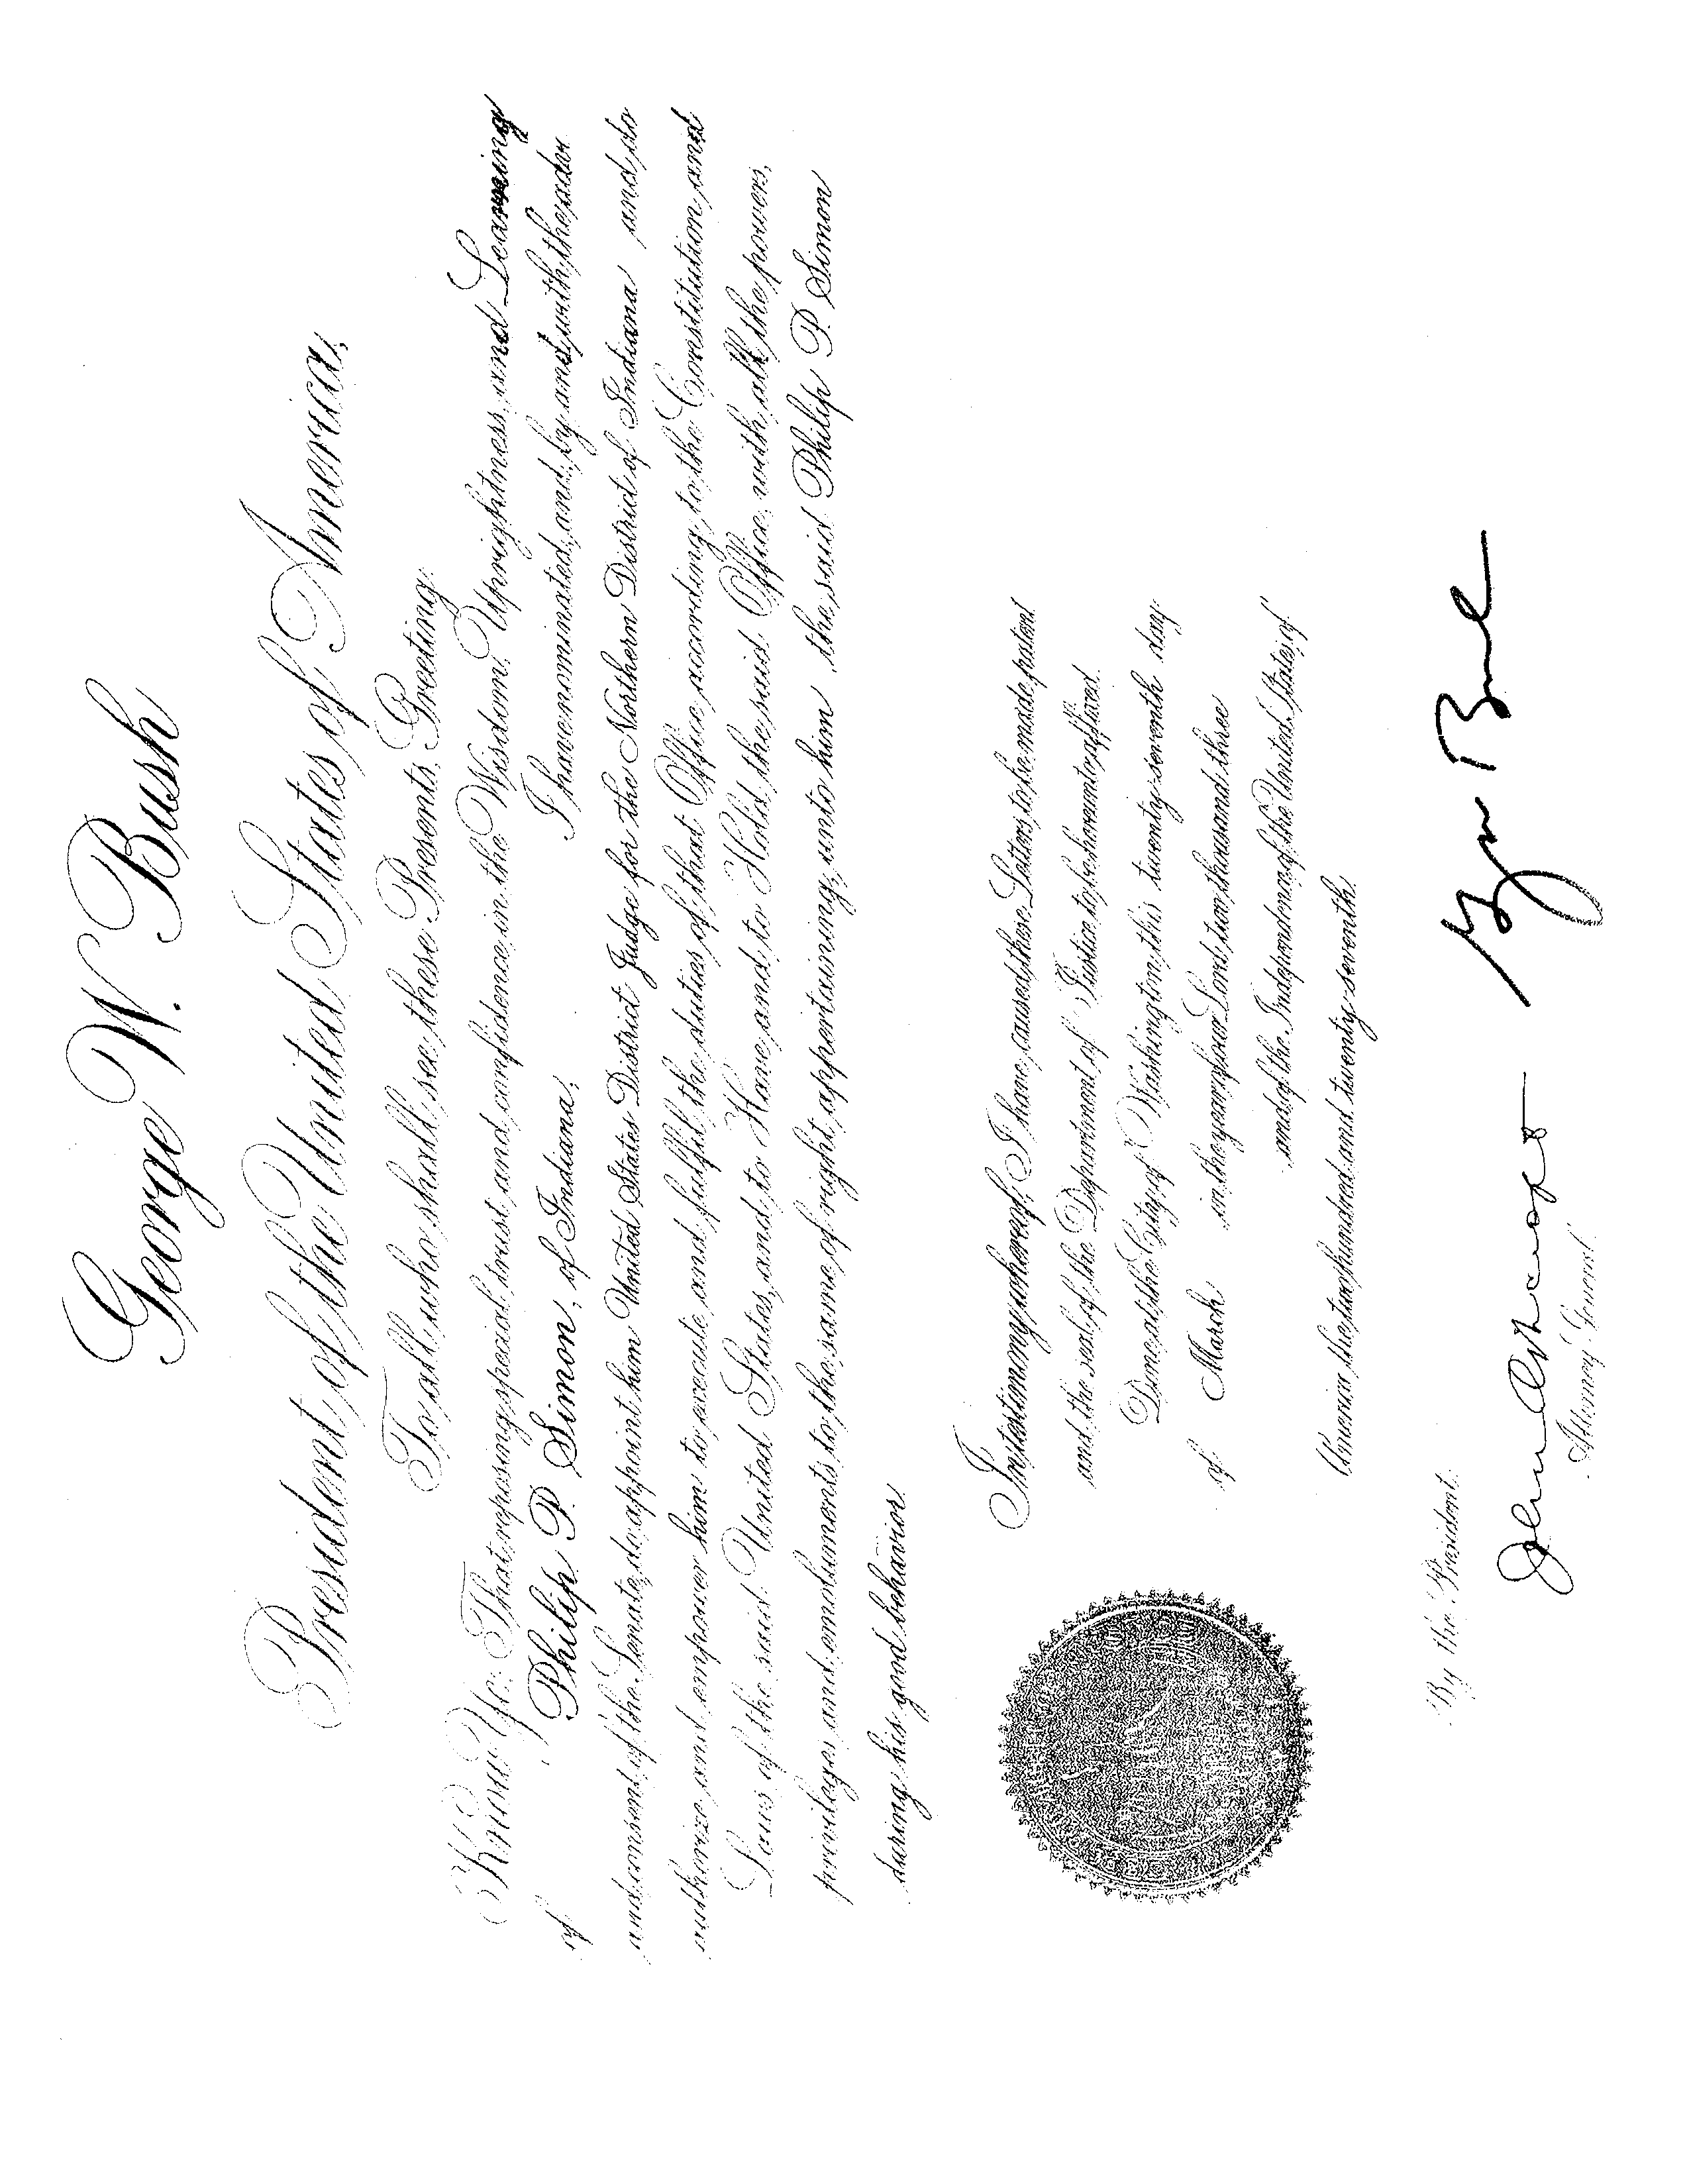 George W. Bush
President of the United States of America,
To all who shall see these Presents, Greeting:
Know Ye: That reposing special trust and confidence in the Wisdom, Uprightness, and Learning
of Philip P. Simon, of Indiana, I have nominated, and, by and with the advice
and consent of the Senate, do appoint him United States District Judge for the Northern District of Indiana and do
authorize and empower him to execute and fulfil the duties of that Office according to the Constitution and
Laws of the said United States, and to Have and to Hold the said Office, with all the powers,
privileges and emoluments to the same of right appertaining, unto him, the said Philip P. Simon
during his good behavior.
In testimony whereof, I have caused these Letters to be made patent
and the seal of the Department of Justice to be hereunto affixed.
Done at the City of Washington this twenty-seventh day
of March in the year of our Lord two thousand three
and of the Independence of the United States of
America the two hundred and twenty-seventh.
By the President:
John Ashcroft
Attorney General.